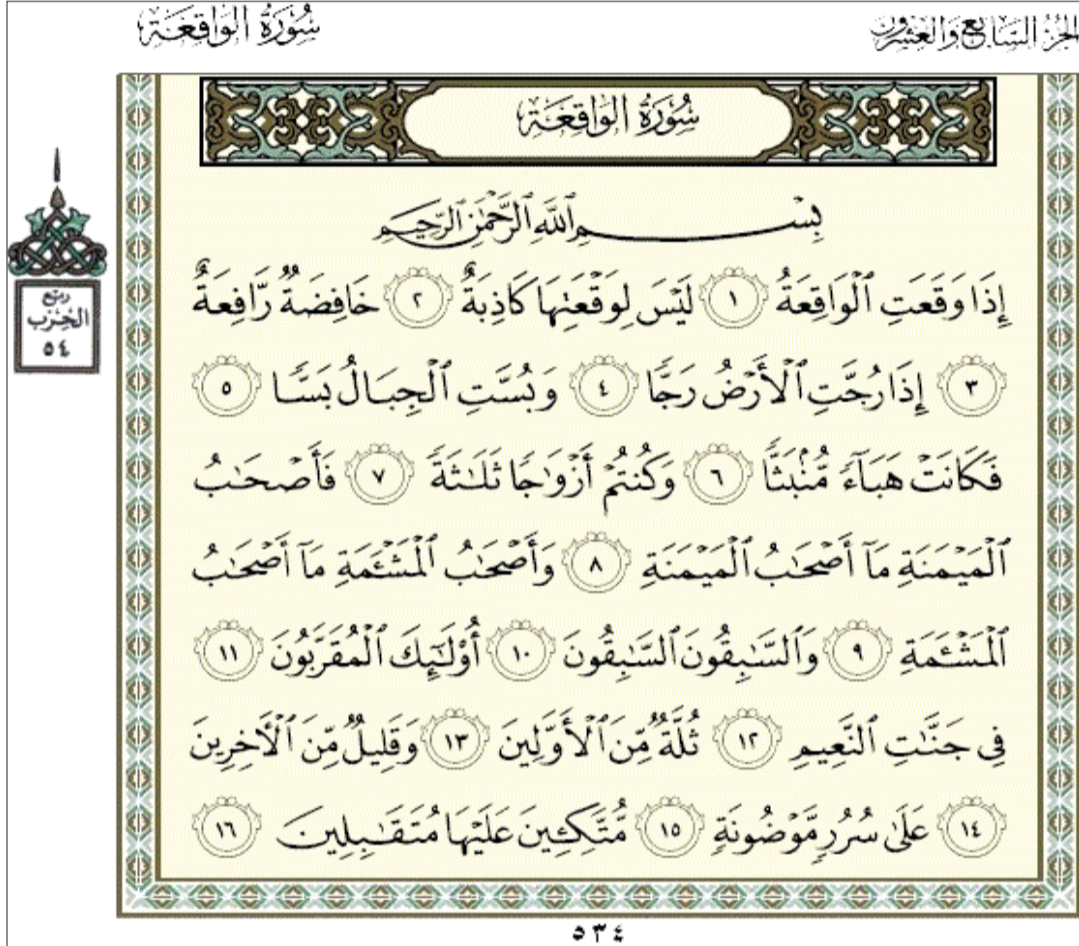 الجزء السابع والعشرون
سُورَةُ الوَاقِعَةِ
سُورَةُ الوَاقِعَةِ
بِسْمِ ٱللَّهِ ٱلرَّحْمَٰنِ ٱلرَّحِيمِ
إِذَا وَقَعَتِ ٱلْوَاقِعَةُ ١ لَيْسَ لِوَقْعَتِهَا كَاذِبَةٌ ٢ خَافِضَةٌ رَّافِعَةٌ
٣ إِذَا رُجَّتِ ٱلْأَرْضُ رَجًّا ٤ وَبُسَّتِ ٱلْجِبَالُ بَسًّا ٥
فَكَانَتْ هَبَآءً مُّنۢبَثًّا ٦ وَكُنتُمْ أَزْوَٰجًا ثَلَٰثَةً ٧ فَأَصْحَٰبُ
ٱلْمَيْمَنَةِ مَآ أَصْحَٰبُ ٱلْمَيْمَنَةِ ٨ وَأَصْحَٰبُ ٱلْمَشْـَٔمَةِ مَآ أَصْحَٰبُ
ٱلْمَشْـَٔمَةِ ٩ وَٱلسَّٰبِقُونَ ٱلسَّٰبِقُونَ ١٠ أُو۟لَٰٓئِكَ ٱلْمُقَرَّبُونَ ١١
فِى جَنَّٰتِ ٱلنَّعِيمِ ١٢ ثُلَّةٌ مِّنَ ٱلْأَوَّلِينَ ١٣ وَقَلِيلٌ مِّنَ ٱلْءَاخِرِينَ
١٤ عَلَىٰ سُرُرٍ مَّوْضُونَةٍ ١٥ مُّتَّكِـِٔينَ عَلَيْهَا مُتَقَٰبِلِينَ ١٦
ربع
الحزب
٥٤
٥٣٤